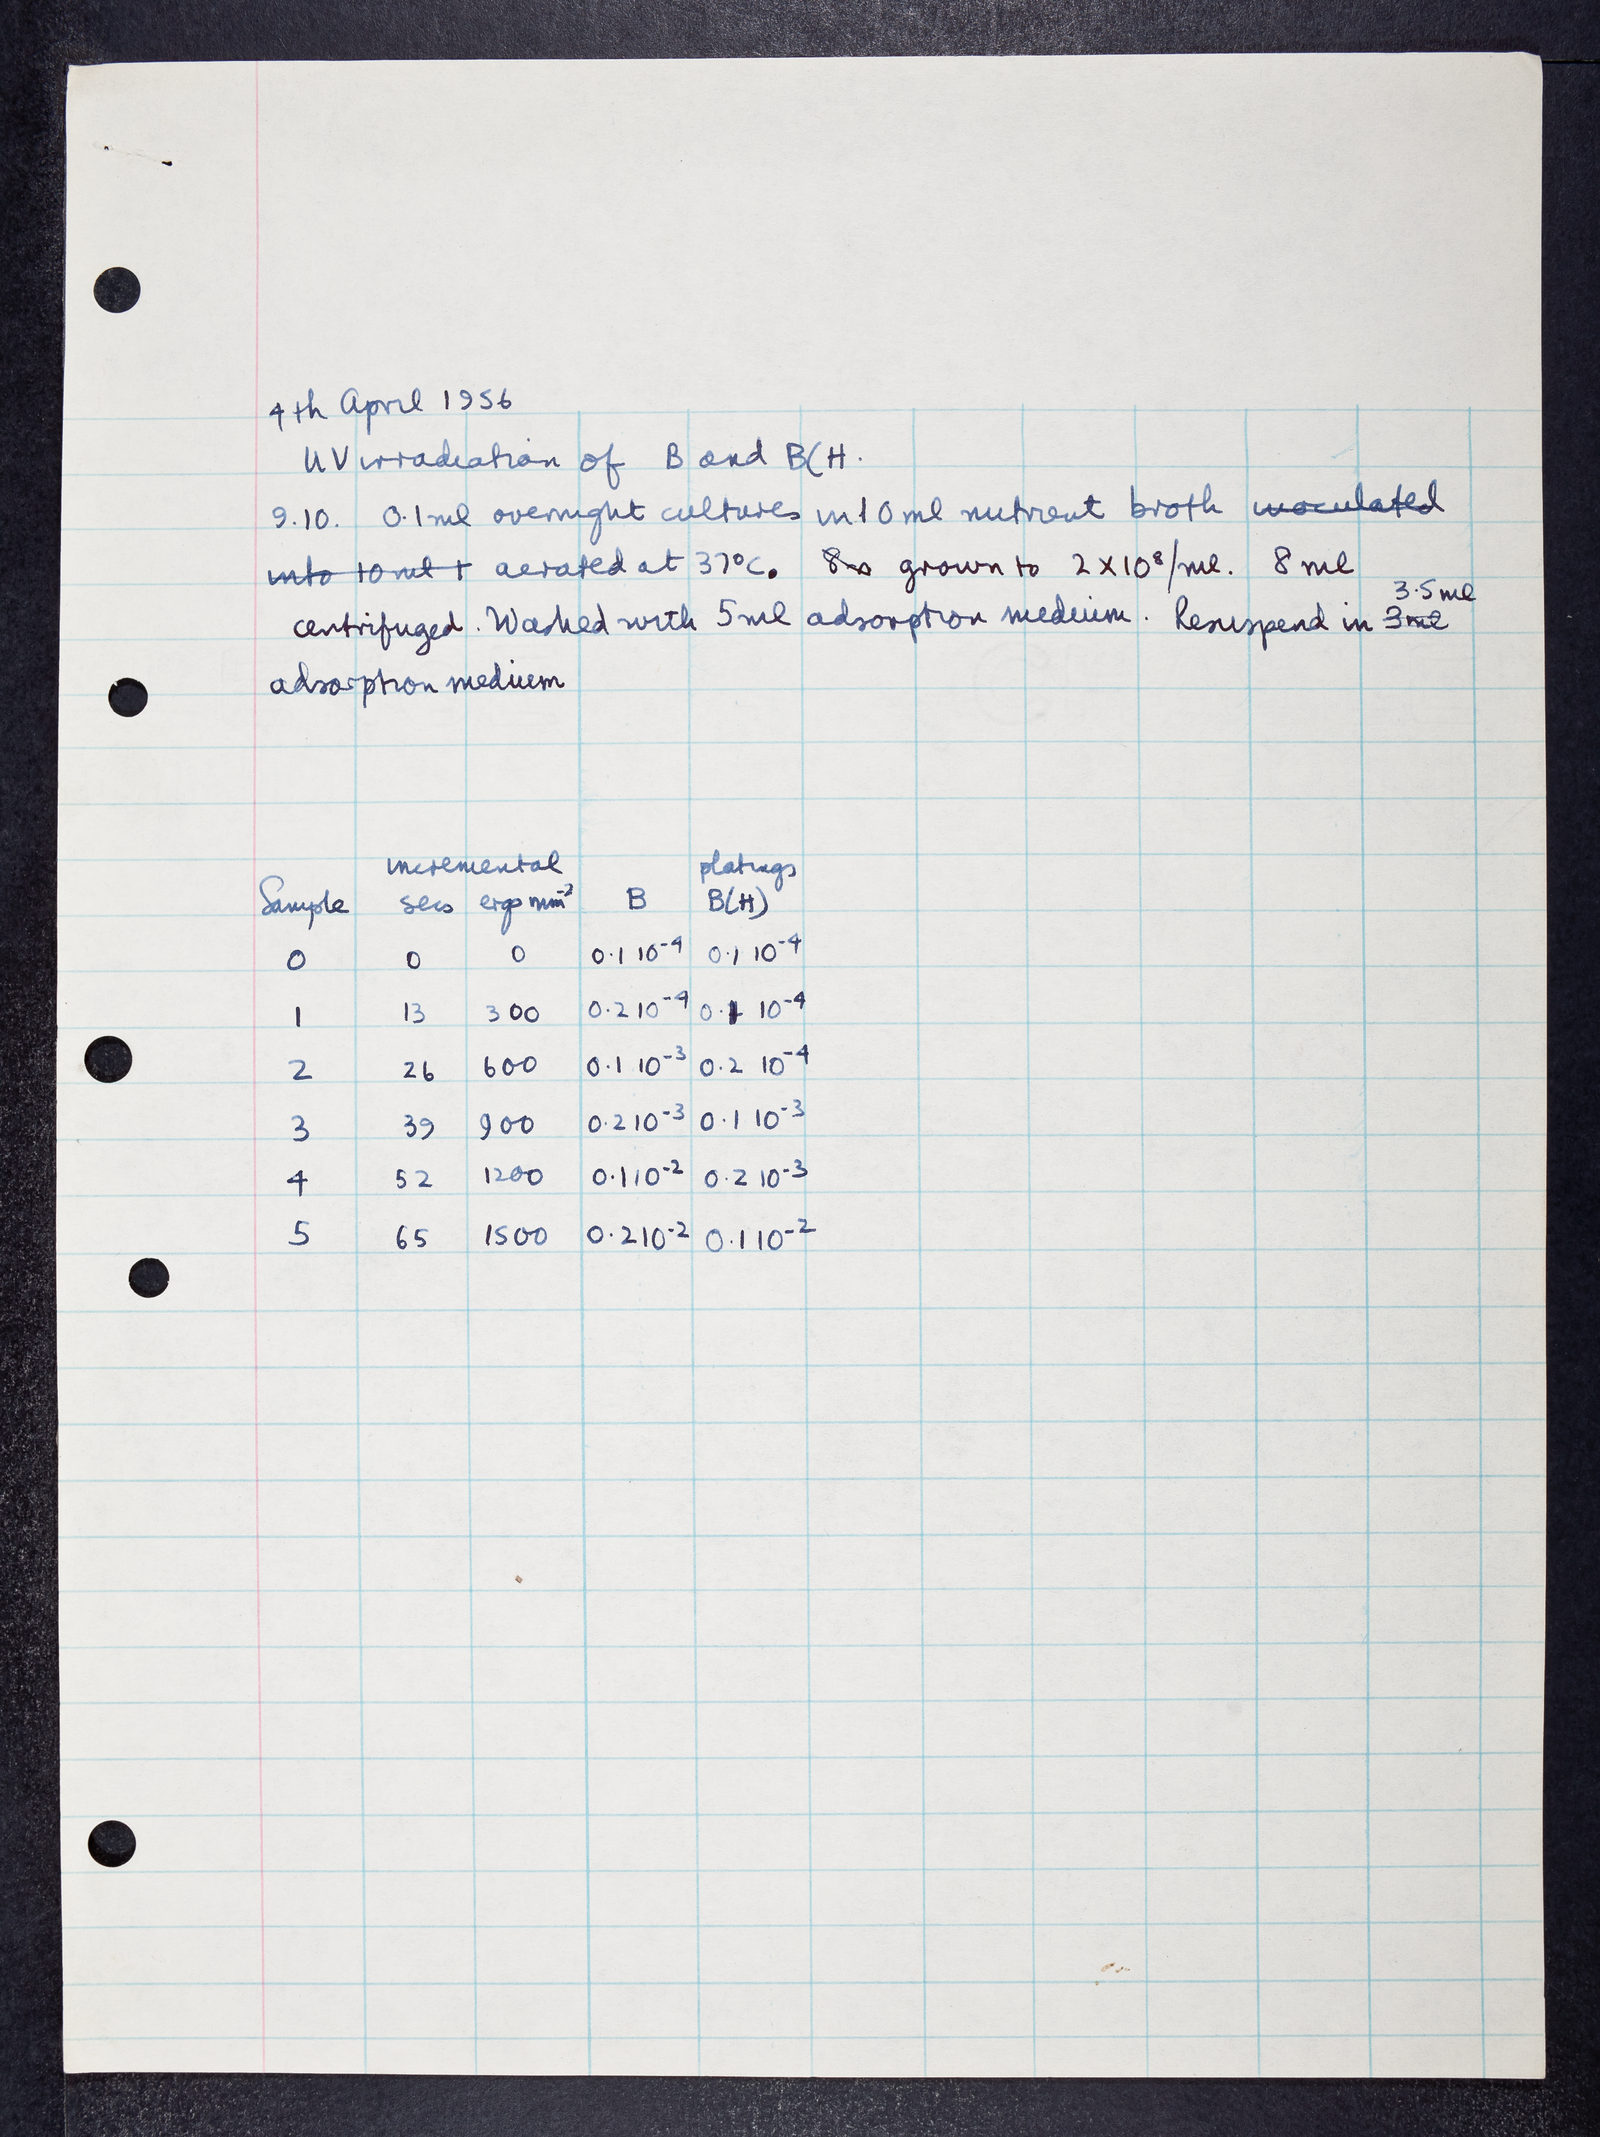 4th April 1956
UV irradiation of B and B(H.
9.10. 0.1ml overnight cultures in 10ml nutrient broth inoculated
into 10ml + aerated at 37°C. grown to 2×10⁸/ml. 8ml
3.5ml
centrifuged. Washed with 5ml adsorption medium. Resuspend in 3ml
adsorption medium
incremental platings
Sample secs ergs mm⁻² B B(H)
0 0 0 0.1 10⁻⁴ 0.1 10⁻⁴
1 13 300 0.2 10⁻⁴ 0.1 10⁻⁴
2 26 600 0.1 10⁻³ 0.2 10⁻⁴
3 39 900 0.2 10⁻³ 0.1 10⁻³
4 52 1200 0.1 10⁻² 0.2 10⁻³
5 65 1500 0.2 10⁻² 0.1 10⁻²